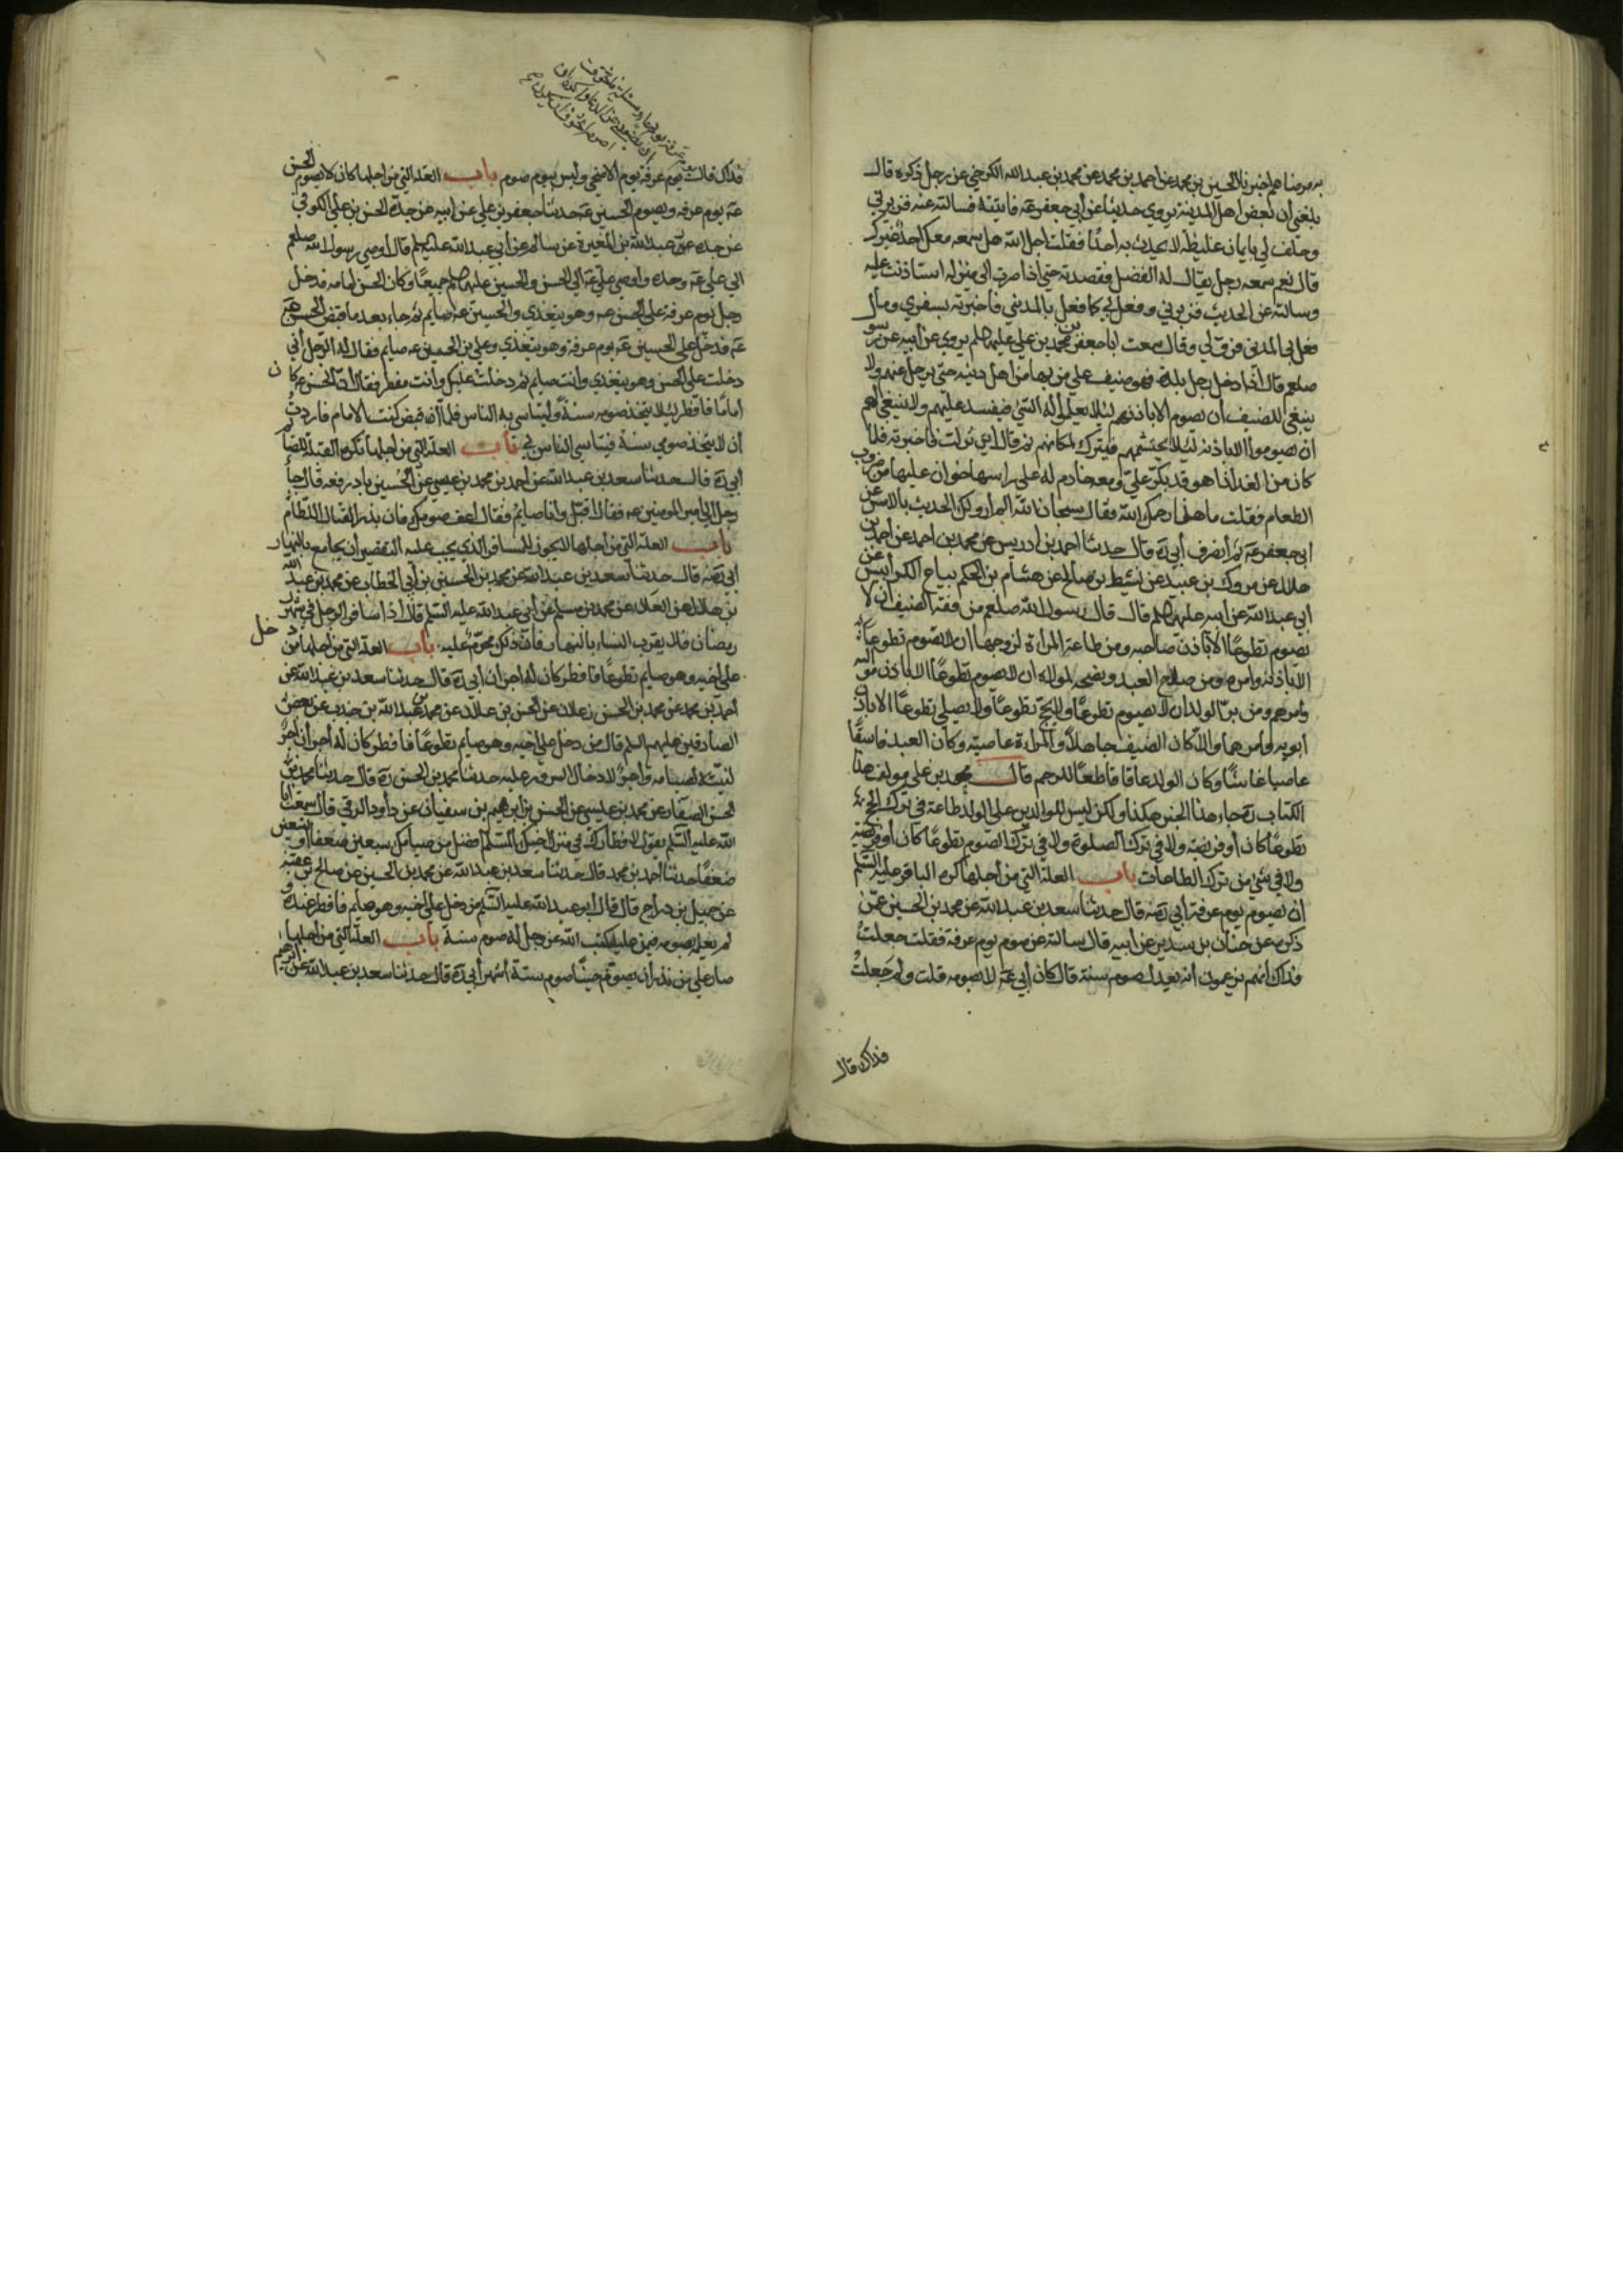 به مرضاهم اخبرنا الحسين بن محمد عن احمد بن محمد عن محمد بن عبد الله الكرخي عن رجل ذكره قال
بلغني ان بعض اهل المدينة يروي حديثا عن أبي جعفر عۀ فاتيته فسالته عنه فزبرني
وحلف لي بايمان غليظة لا يحدث به احدًا فقلت اجل الله هل سمعه معك احد غيرك
قال نعم سمعه رجل يقال له الفضل فقصدته حتي اذا صرت الى منزله استاذنت عليه
وسالته عن الحديث فزبرني وفعل بي كما فعل بالمديني فاخبرته بسفري وما
فعل بي المديني فرق لي وقال سمعت ابا جعفر محمد بن علي عليهما السلم يروي عن ابيه عن رسو
صلعم قال اذا دخل رجل بلدة فهو ضيف علي من بها من اهل دينه حتي يرحل عنهم ولا
ينبغي للضيف أن يصوم الا باذنهم لئلا يعملوا له الشئ فيفسد عليهم ولا ينبغي لهم
ان يصوموا الا باذنه لئلا يحتشمهم فيترك لمكانهم ثم قال اين نزلت فاخبرته فلما
كان من الغد اذا هو قد بكر علي ومعه خادم له على راسها خوان عليها من ضروب
الطعام فقلت ما هذا رحمك الله فقال سبحان الله الم ارو لك الحديث بالامس عن
ابي جعفر عۀ ثم انصرف أبي رۀ قال حدثنا احمد بن ادريس عن محمد بن احمد عن احمد بن
هلال عن مروك بن عبيد عن نشيط بن صالح عن هشام بن الحكم بياع الكرابيس عن
ابي عبد الله عن ابيه عليهما السلم قال قال رسول الله صلعم من فقه الضيف ان لا
يصوم تطوعًا الا باذن صاحبه ومن طاعة المراة لزوجها ان لا تصوم تطوعًا
الا باذنه وامره ومن صلاح العبد ونصحه لمولاه ان لا يصوم تطوعًا الا باذن مواليه
وامرهم ومن بر الولد ان لا يصوم تطوعًا ولا يحج تطوعًا ولا يصلي تطوعًا الا باذن
أبويه وأمرهما والا كان الضيف جاهلًا والمراة عاصية وكان العبد فاسقًا
عاصيا غاشًا وكان الولد عاقا قاطعًا للرحم قال محمد بن علي مؤلف هذا
الكتاب رۀ جاء هذا الخبر هكذا ولكن ليس للوالدين على الولد طاعة في ترك الحج
تطوعًا كان أو فريضة ولا في ترك الصلوة ولا في ترك الصوم تطوعًا كان أو فريضة
ولا في شئ من ترك الطاعات باب العلة التي من أجلها كره الباقر عليه السلم
ان يصوم يوم عرفة أبي رضه قال حدثنا سعد بن عبد الله عن محمد بن الحسين عمن
ذكره عن حنان بن سدير عن ابيه قال سالته عن صوم يوم عرفة فقلت جعلت
فداك انهم يزعمون انه يعدل صوم سنة قال كان أبي عۀ لا يصومه قلت ولم جعلت
فداك قال
فداك قال يوم عرفة يوم الاضحى وليس بيوم صوم باب العلة التي من اجلها كان لا يصوم الحسن
عۀ يوم عرفه ويصوم الحسين عۀ حدثنا جعفر بن علي عن ابيه عن جده الحسن بن علي الكوفي
عن جده عبد الله بن المغيرة عن سالم عن أبي عبد الله عليه السلم قال أوصي رسول الله صلعم
الي علي عۀ وحده واوصي علي عۀ الي الحسن والحسين عليهما السلم جميعًا وكان الحسن امامه فدخل
رجل يوم عرفة على الحسن عۀ وهو يتغدي والحسين عۀ صايم ثم جاء بعد ما قبض الحسن
عۀ فدخل على الحسين عۀ يوم عرفة وهو يتغدي وعلي بن الحسين عۀ صايم فقال له الرجل أني
دخلت على الحسن وهو يتغدي وانت صايم ثم دخلت عليك وانت مفطر فقال ان الحسن عۀ كان
امامًا فافطر لئلا يتخذ صومه سنة وليتاسي به الناس فلما ان قبض كنت الامام فاردت
أن لا يتخذ صومي سنة فيتاسي الناس بي باب العلة التي من اجلها تكره القبلة للصائم
أبي رۀ قال حدثنا سعد بن عبد الله عن احمد بن محمد بن عيسي عن الحسين باد رفعه قال جاء
رجل الي امير المومنين عۀ فقال اقبل وانا صايم فقال اعف صومك فان بدء القتال اللطام
باب العلة التي من اجلها لا يجوز للمسافر الذي يجب عليه التقصير أن يجامع بالنهار
أبي رضه قال حدثنا سعد بن عبد الله عن محمد بن الحسين بن أبي الخطاب عن محمد بن عبد الله
بن هلال عن العلاء عن محمد بن مسلم عن أبي عبد الله عليه السلم قال اذا سافر الرجل في شهر
رمضان فلا يقرب النساء بالنهار فان ذلك محرم عليه باب العلة التي من اجلها من دخل
على اخيه وهو صايم تطوعًا فافطر كان له اجران أبي رۀ قال حدثنا سعد بن عبد الله عن
أحمد بن محمد عن محمد بن الحسن بن علان عن الحسن بن علان عن محمد بن عبد الله بن جندب عن بعض
الصادقين عليهم السلم قال من دخل على اخيه وهو صايم تطوعًا فافطر كان له أجران أجر
لنيته لصيامه واجر لادخال السرور عليه حدثنا محمد بن الحسن رۀ قال حدثنا محمد بن
الحسن الصفار عن محمد بن عيسي عن الحسن بن ابرهيم بن سفيان عن داود الرقي قال سمعت أبا
الله عليه السلم يقول لافطارك في منزل اخيك المسلم أفضل من صيامك سبعين ضعفا أو تسعين
ضعفًا حدثنا أحمد بن محمد قال حدثنا سعد بن عبد الله عن محمد بن الحسين عن صالح بن عقبة
عن جميل بن دراج قال قال أبو عبد الله عليه السلم من دخل على اخيه وهو صايم فافطر عنده و
لم يعلمه بصومه فيمن عليه كتب الله عز وجل له صوم سنة باب العلة التي من اجلها
صار علي من نذر ان يصوم حينًا صوم ستة أشهر أبي رۀ قال حدثنا سعد بن عبد الله عن ابرهيم